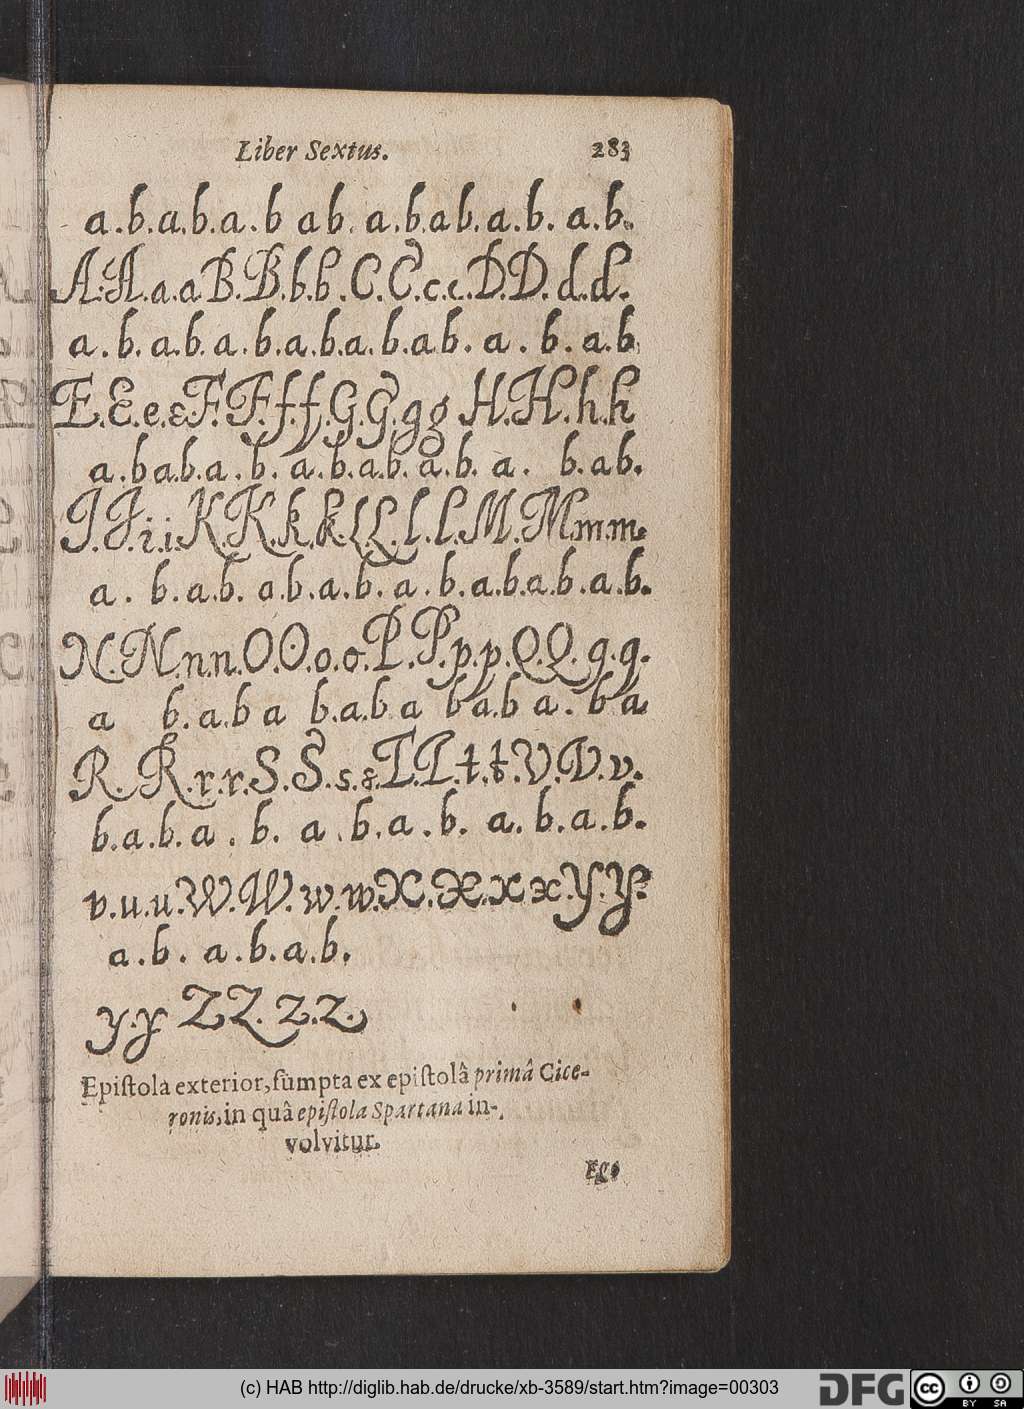 Liber Sextus. 283
a.b.a.b.a.b ab. a.b.ab.a.b. a.b.
A.A.a.aB.B.b.b.C.C.c.c.D.D.d.d.
a.b.a.b.a.b.a.b.a.b.ab. a. b. a.b
E.E.e.eF.F.f.f.G.G.gg H.H.h.h
a.bab.a. b. a.b.ab. a.b. a. b.ab.
I.I.i.i.K.K.k.k.L.L.l.l.M.M.m.m.
a. b.a.b. a.b.a.b.a.b.a.b.a.b.a.b.
N.N.n.n.O.O.o.o.P.P.p.p.Q.Q.q.q.
a b.a.b a b.a.b a ba.b a. b a.
R.R.r.r.S.S.s.s.T.T.t.t.V.V.v.
b.a.b.a. b. a.b.a.b. a.b.a.b.
v.u.u.W.W.w.w.X.X.x x.Y.Y.
a.b. a.b.a.b.
y.y Z Z. z.z.
Epiſtola exterior, ſumpta ex epiſtolâ primâ Cice-
ronis, in quâ epiſtola Spartana in-
volvitur.
Ego
(c) HAB http://diglib.hab.de/drucke/xb-3589/start.htm?image=00303
DFG cc BY SA